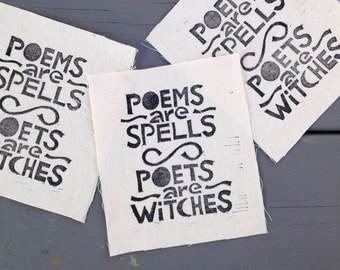 POEMS
are
SPELLS
POETS
are
WiTCHES
POEMS
are
SPELLS
POETS
are
WiTCHES
SPELLS
POETS
are
WiTCHES